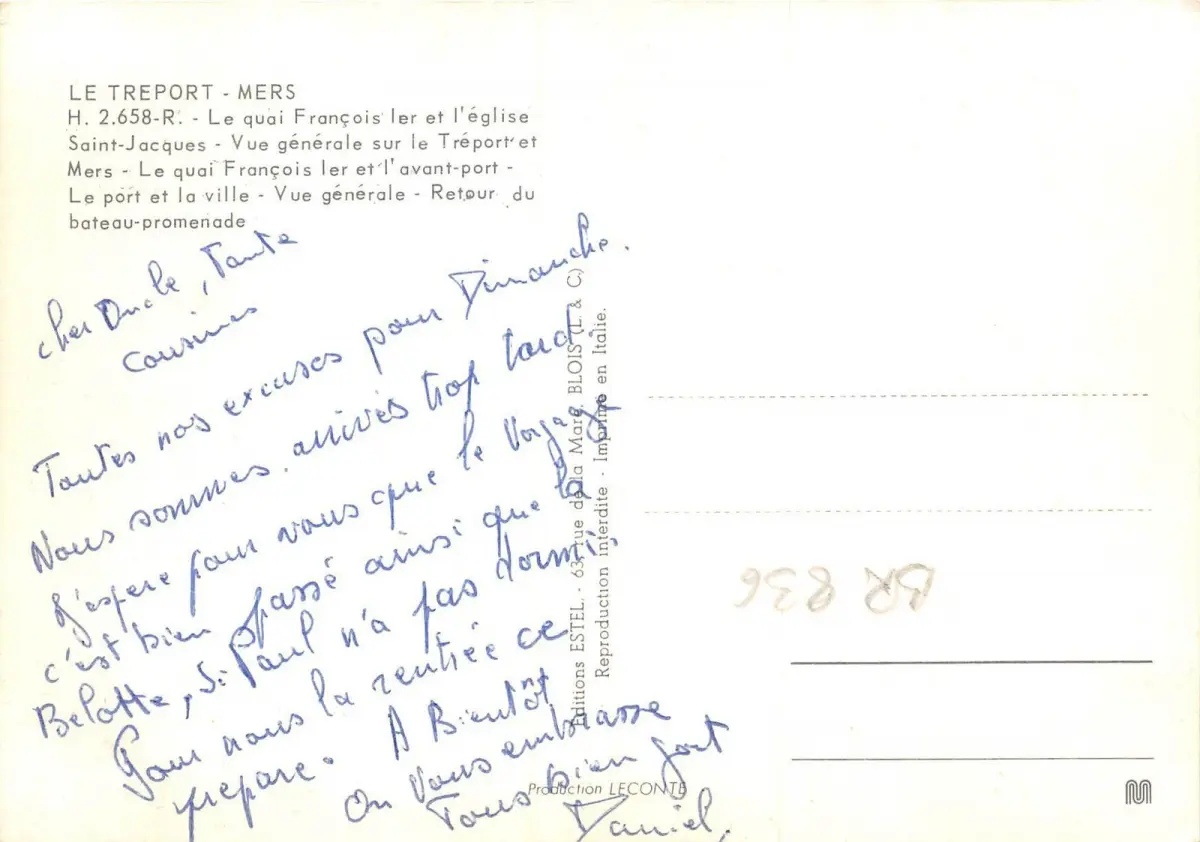 LE TREPORT - MERS
H. 2.658-R. - Le quai François Ier et l'église
Saint-Jacques - Vue générale sur le Tréport et
Mers - Le quai François Ier et l'avant-port -
Le port et la ville - Vue générale - Retour du
bateau-promenade
cher Oncle, Tante
cousines
Toutes nos excuses pour Dimanche.
Nous sommes arrivés trop tard.
J'espere pour vous que le Voyage
c'est bien passé ainsi que la
Belotte, si Paul n'a pas dormis
Pour nous la rentrée ce
prepare. A Bientôt
On Vous embrasse
Tous bien fort
Daniel.
Editions ESTEL. - 63, rue de la Mare, BLOIS (L. & C)
Reproduction interdite - Imprimé en Italie.
BR 836
Production LECONTE
M